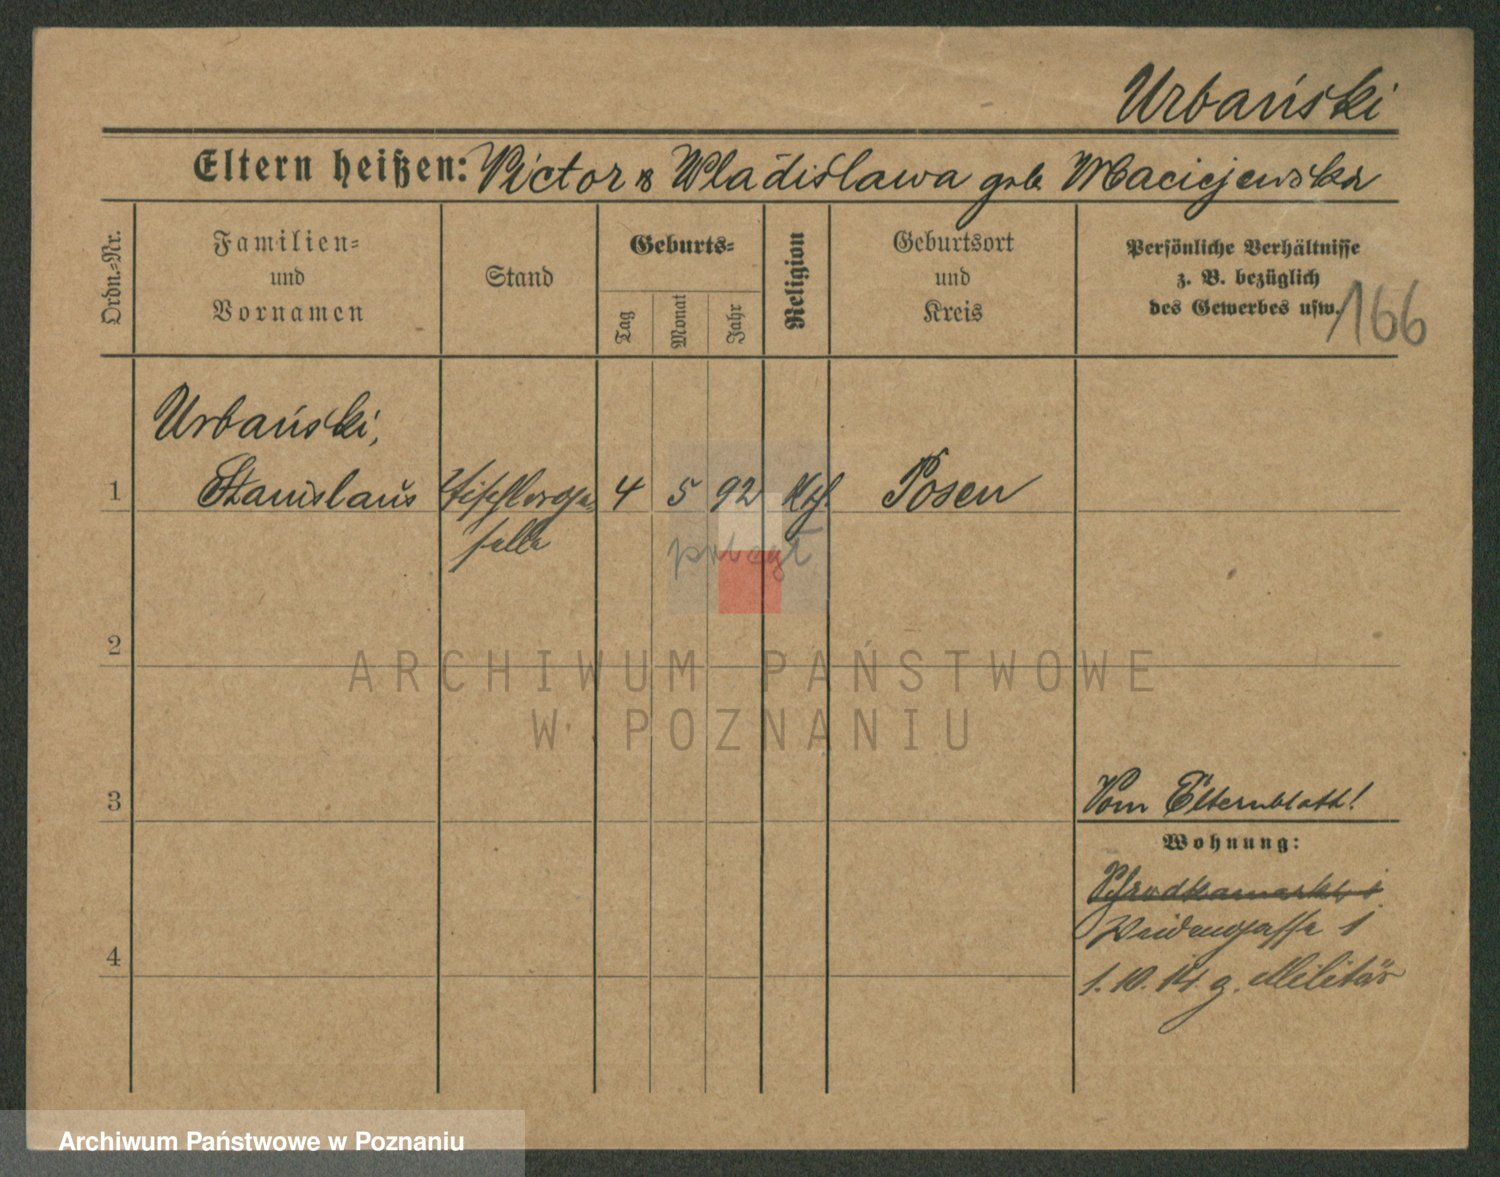 Urbański
Eltern heißen: Victor & Wladislawa geb. Maciejewska
Ordn.-Nr.
Familien-
und
Vornamen
Stand
Geburts-
Tag
Monat
Jahr
Religion
Geburtsort
und
Kreis
Persönliche Verhältnisse
z. B. bezüglich
des Gewerbes usw.
166
Urbański,
1 Stanislaus Tischlerge- 4 5 92 Kth. Posen
selle
ARCHIWUM PAŃSTWOWE
W POZNANIU
2
3
Vom Elternblatt!
Wohnung:
Schrodkamarkt
Weidengasse 1
4
1.10.14 z. Militär
Archiwum Państwowe w Poznaniu